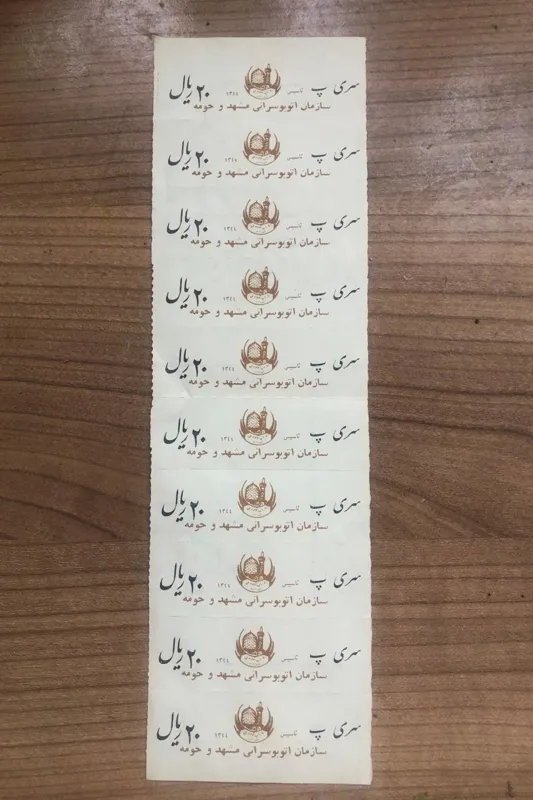 سری پ تاسیس ۱۳٤٤ ۲۰ ریال
سازمان اتوبوسرانی مشهد و حومه
سری پ تاسیس ۱۳٤٤ ۲۰ ریال
سازمان اتوبوسرانی مشهد و حومه
سری پ تاسیس ۱۳٤٤ ۲۰ ریال
سازمان اتوبوسرانی مشهد و حومه
سری پ تاسیس ۱۳٤٤ ۲۰ ریال
سازمان اتوبوسرانی مشهد و حومه
سری پ تاسیس ۱۳٤٤ ۲۰ ریال
سازمان اتوبوسرانی مشهد و حومه
سری پ تاسیس ۱۳٤٤ ۲۰ ریال
سازمان اتوبوسرانی مشهد و حومه
سری پ تاسیس ۱۳٤٤ ۲۰ ریال
سازمان اتوبوسرانی مشهد و حومه
سری پ تاسیس ۱۳٤٤ ۲۰ ریال
سازمان اتوبوسرانی مشهد و حومه
سری پ تاسیس ۱۳٤٤ ۲۰ ریال
سازمان اتوبوسرانی مشهد و حومه
سری پ تاسیس ۱۳٤٤ ۲۰ ریال
سازمان اتوبوسرانی مشهد و حومه